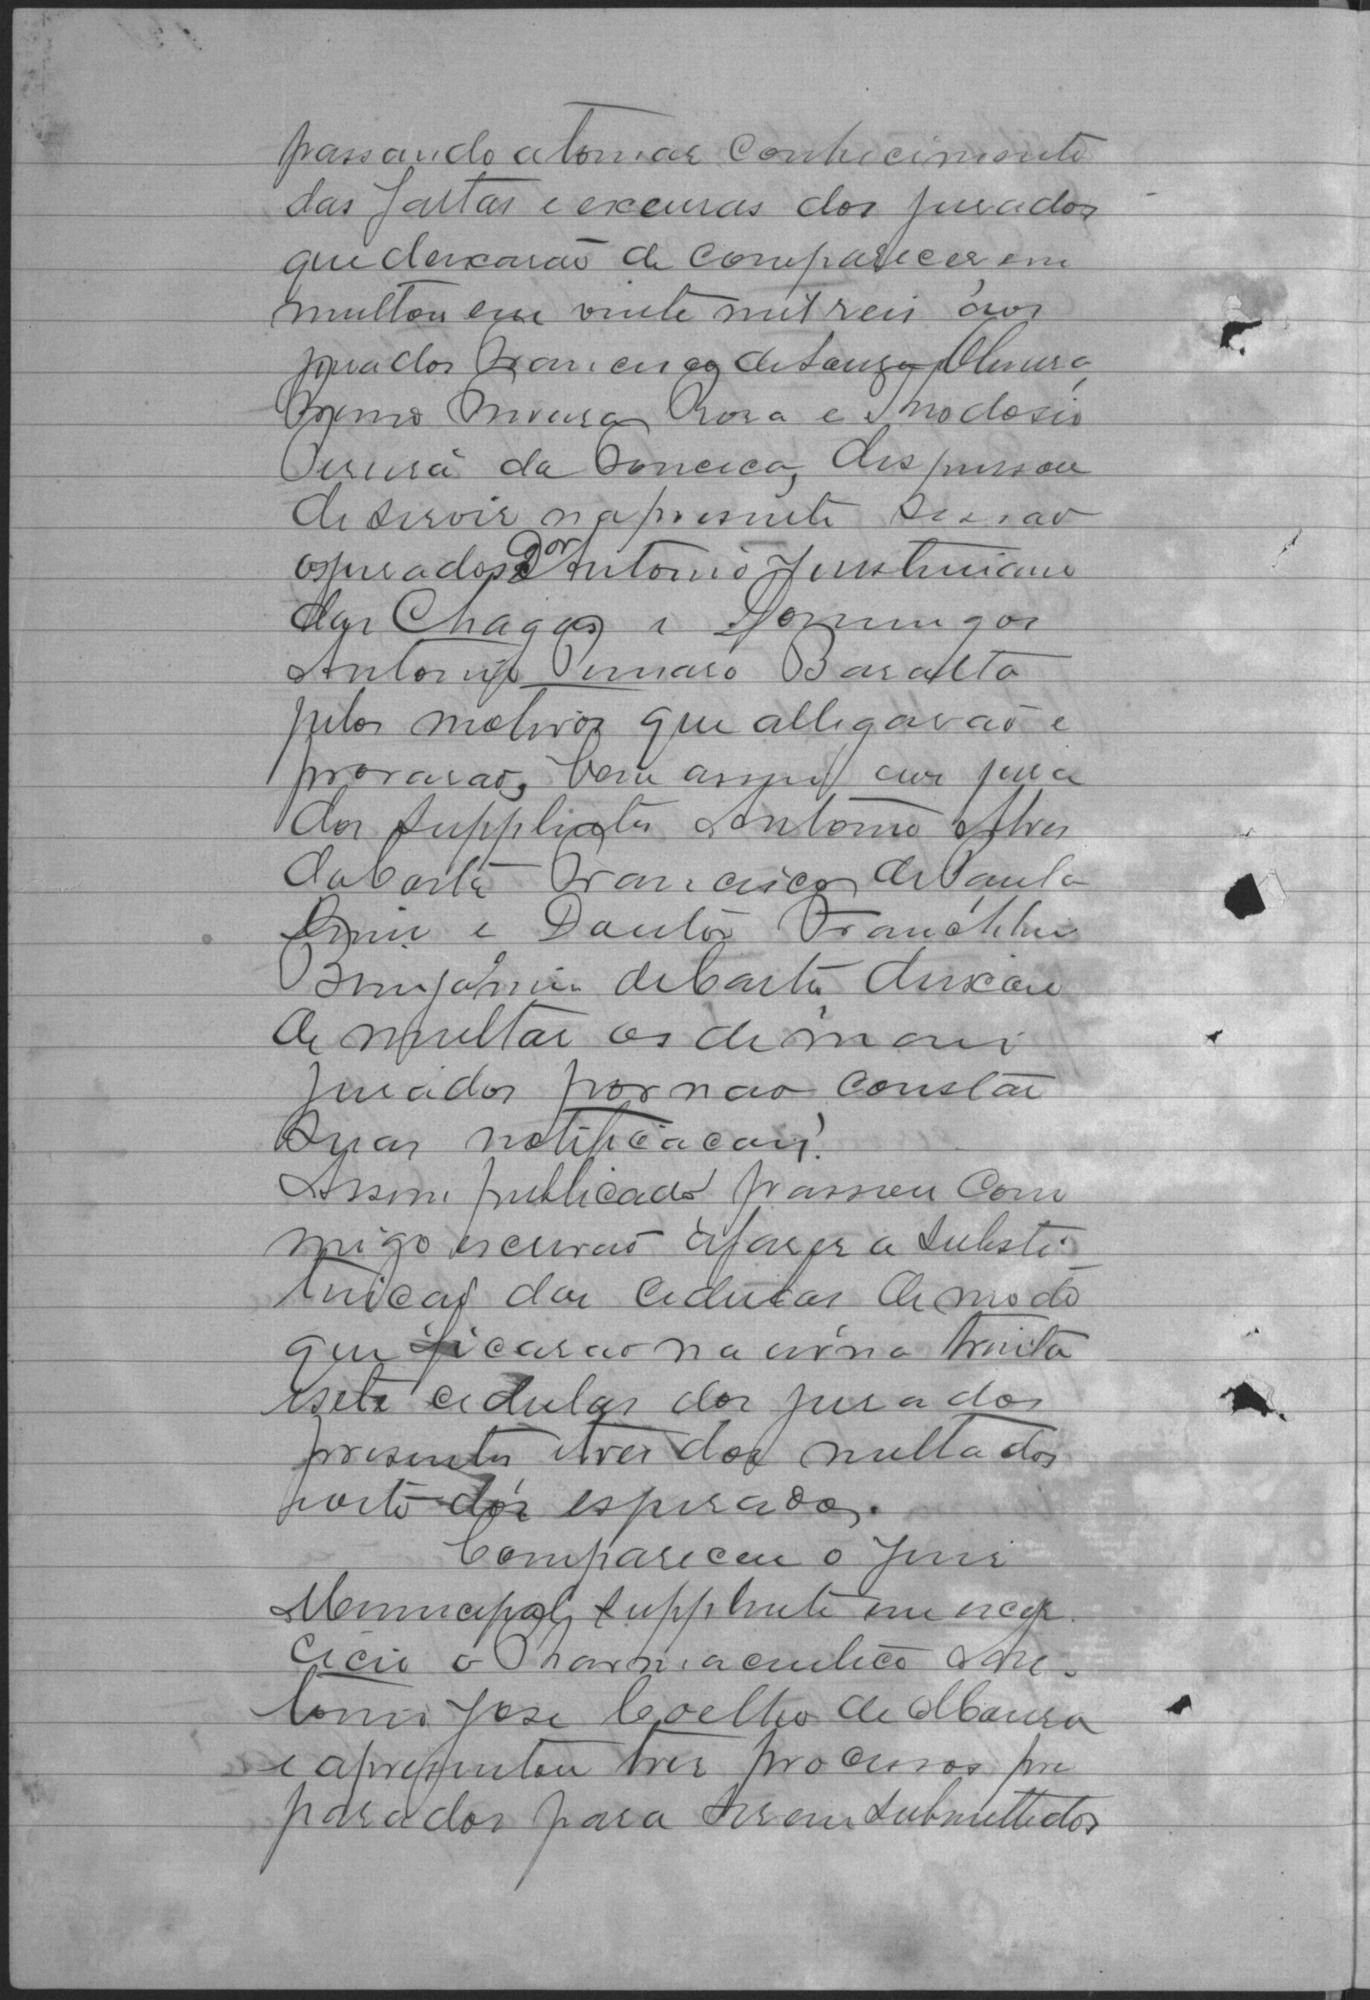 passando a tomar conhecimento
das faltas e excusas dos jurados
que deixarão de comparecer em
multou em vinte mil reis áos
jurados Francisco de Souza Oliveira,
Pereira Rosa e Theodosio
Pereira da Fonceca, dispensou
de servir na presente sessão
os jurados Dor Antonio Justiniano
das Chagas e Domingos
Antonio Baratta
pelos motivos que allegarão e
provarão, bem assim aos jura
dos supplentes Antonio Alves
da Costa Francisco de Paula
e Doutor Franklin
Benjamin de Castro deixou
de multar os demais
jurados por não constar
suas notificacoes.
Assim publicado passou com
migo escrivão á fazer a substi
tuicaõ das cedulas de modo
que ficarão na urna trinta
e sete cedulas dos jurados
presentes e tres dos multados
dos esperados.
Compareceu o Juiz
Municipal supplente em exer
cicio o Pharmaceutico An
tonio José Coelho de Moura
e apresentou tres processos pre
parados para serem submettidos